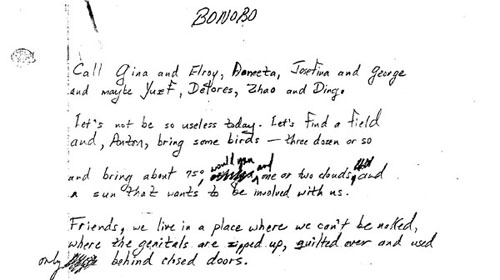 BONOBO
Call Gina and Elroy, Demeta, Josefina and George
and maybe Yuzf, Delores, Zhao and Ding.
Let's not be so useless today. Let's find a field
and, Anton, bring some birds — three dozen or so
and bring about 75°, would you and one or two clouds, and
a sun that wants to be involved with us.
Friends, we live in a place where we can't be naked,
where the genitals are zipped up, quilted over and used
only behind closed doors.